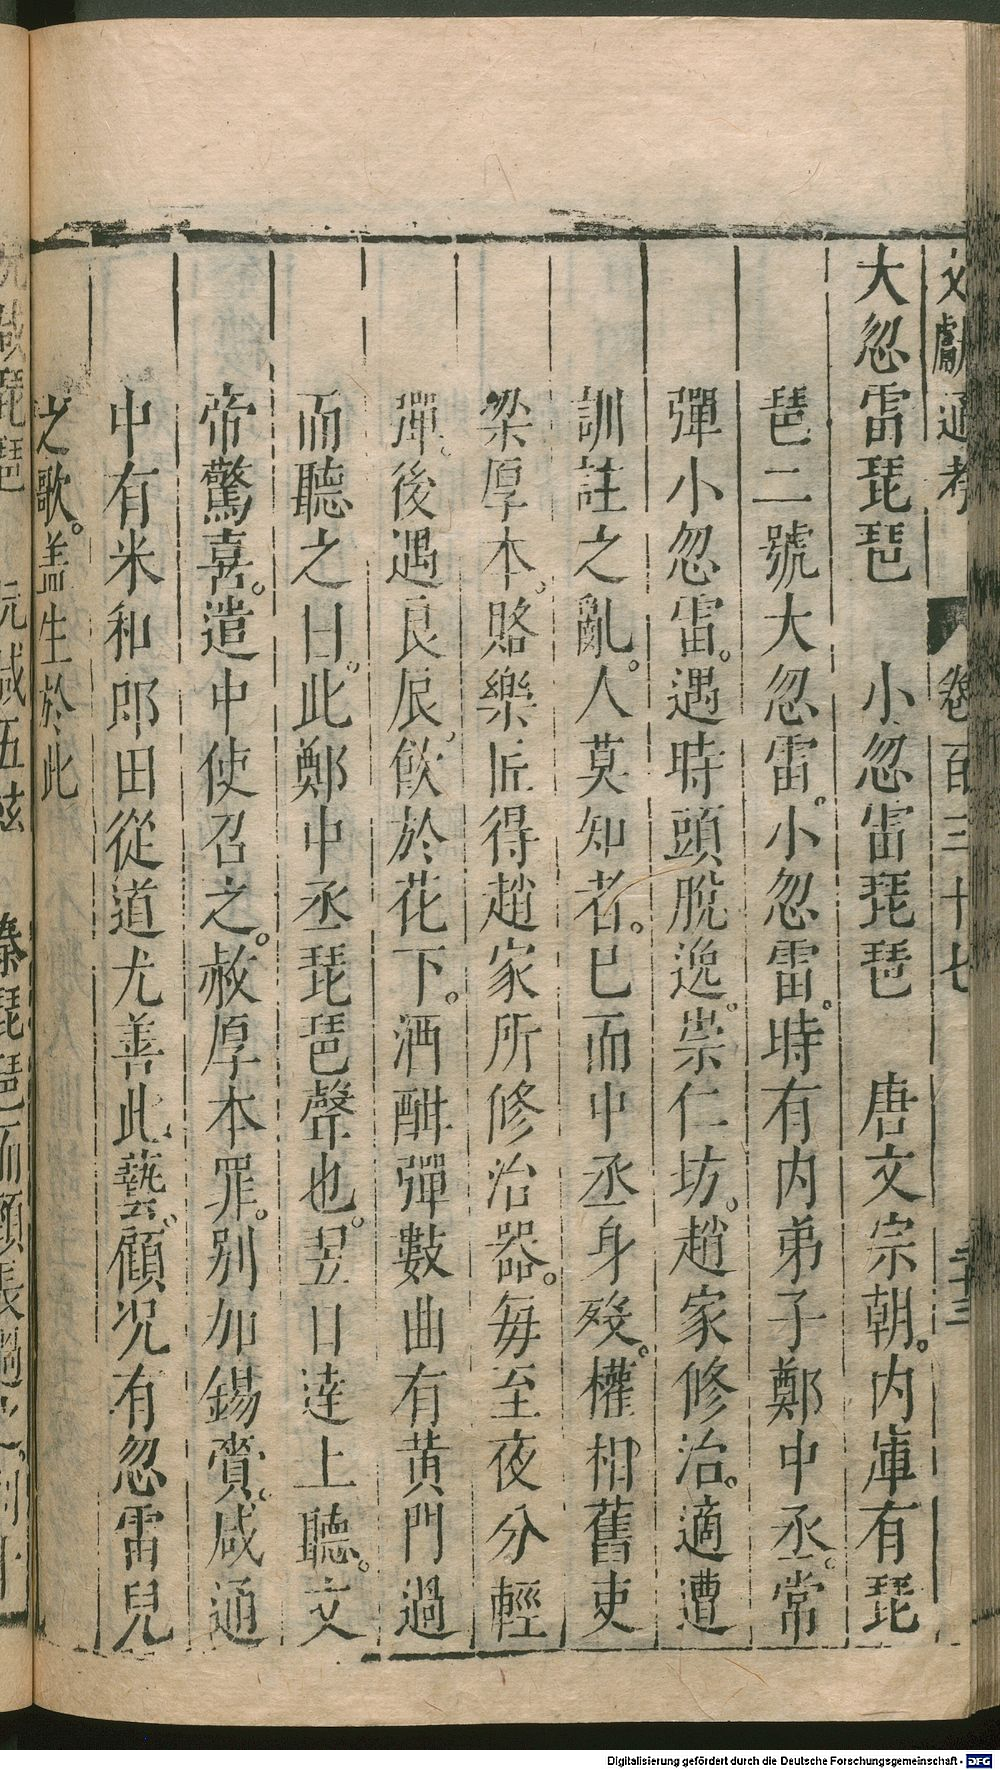 文獻通考 卷百三十七 二十三
大忽雷琵琶 小忽雷琵琶 唐文宗朝。内庫有琵
琶二號大忽雷。小忽雷。時有内弟子鄭中丞。常
彈小忽雷。遇時頭脫逸。崇仁坊。趙家修治。適遭
訓註之亂。人莫知者。已而中丞身殁。權相舊吏
梁厚本。賂樂匠得趙家所修治器。每至夜分輕
彈。後遇良辰。飲於花下。酒酣彈數曲有黄門過
而聽之曰。此鄭中丞琵琶聲也。翌日達上聽。文
帝驚喜。遣中使召之。赦厚本罪。别加錫賚。咸通
中有米和郎田從道尤善此藝。顧况有忽雷兒
之歌。盖生於此
Digitalisierung gefördert durch die Deutsche Forschungsgemeinschaft - DFG